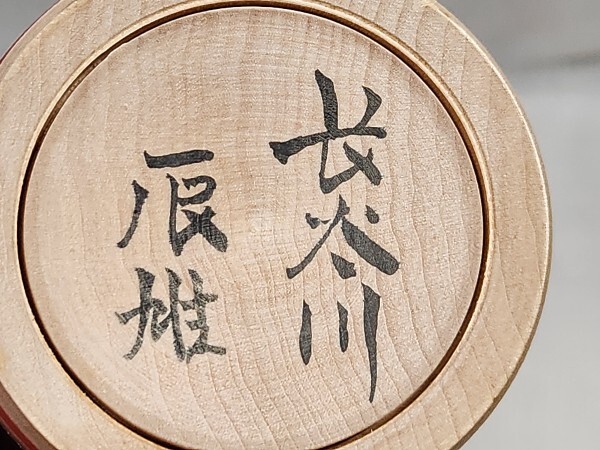 長谷川
辰雄